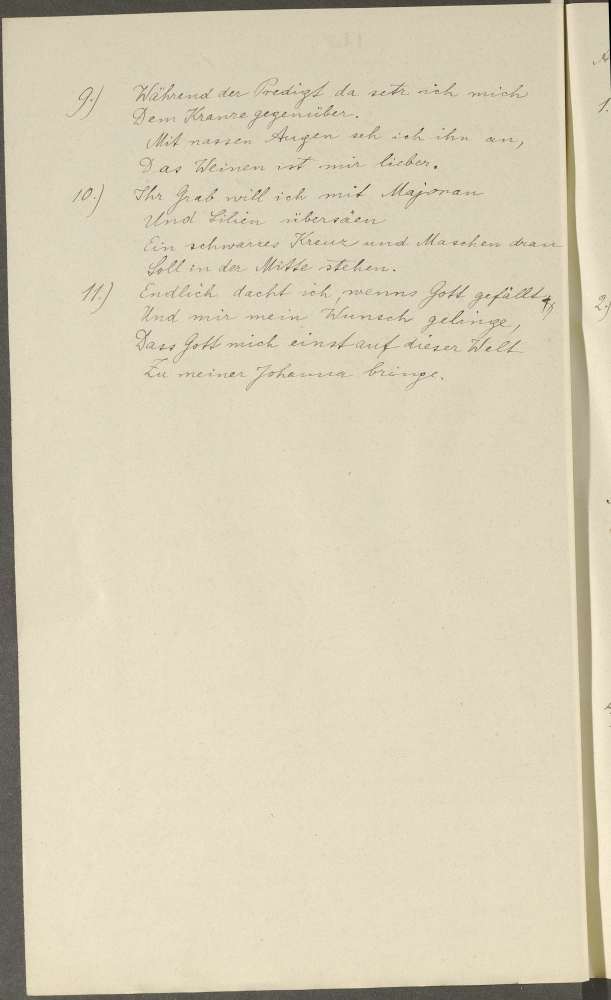 9.) Während der Predigt da setz ich mich
Dem Kranze gegenüber.
Mit nassen Augen seh ich ihn an,
Das Weinen ist mir lieber.
10.) Ihr Grab will ich mit Majoran
Und Lilien übersäen
Ein schwarzes Kreuz und Maschen dran
Soll in der Mitte stehen.
11.) Endlich dacht ich, wenns Gott gefällt
Und mir mein Wunsch gelinge,
Dass Gott mich einst auf dieser Welt
Zu meiner Johanna bringe.
1.
2.)